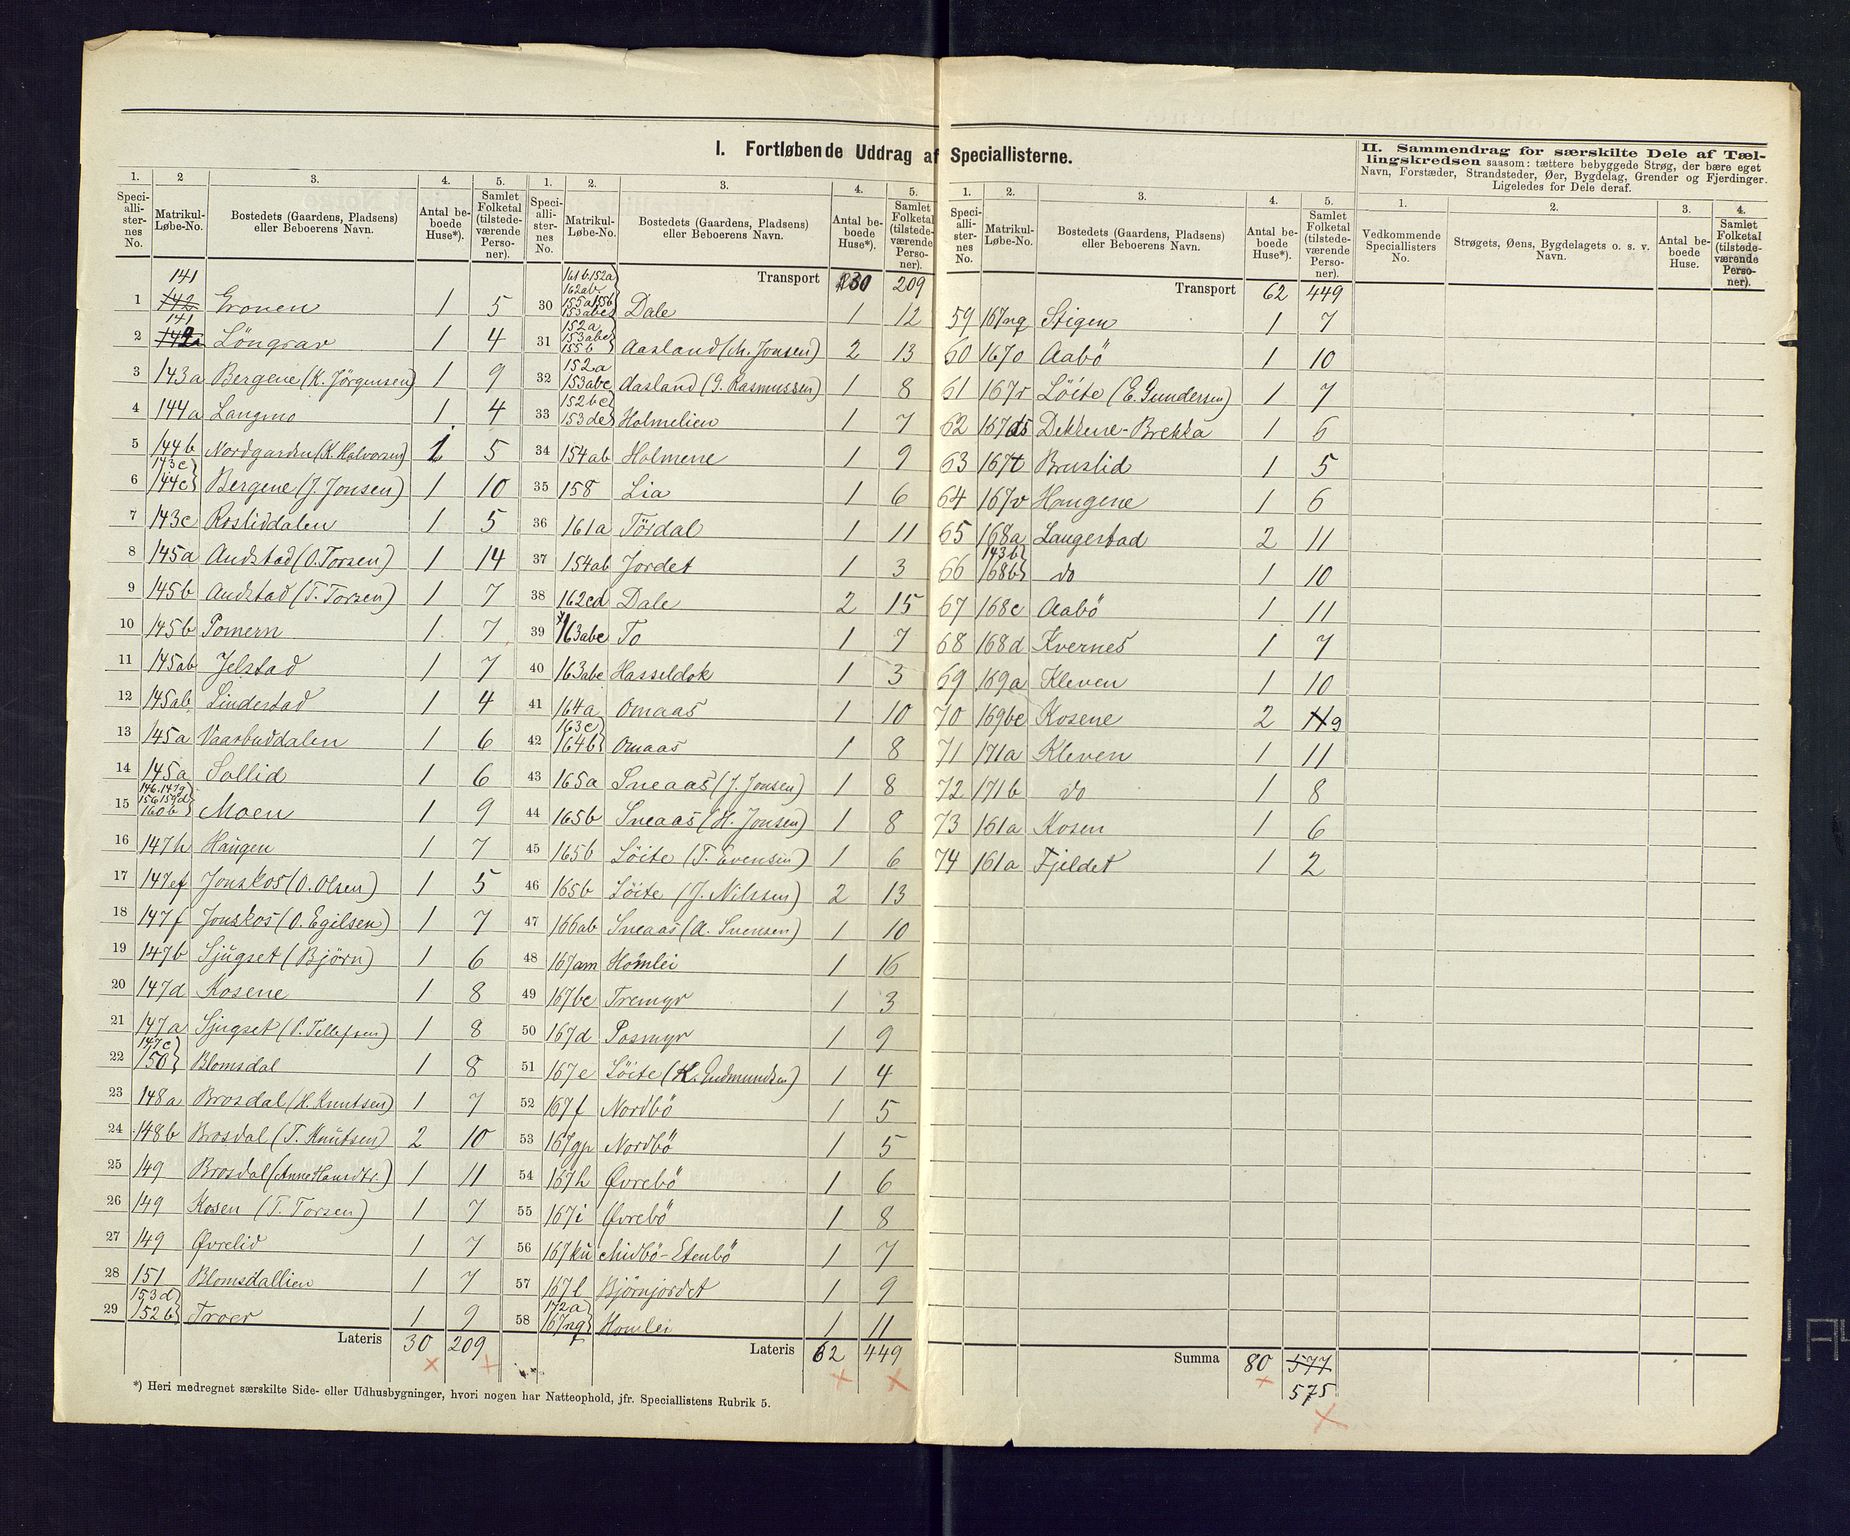 I. Fortløbende Uddrag af Speciallisterne.
1. 2 3. 4. 5.
Speci-alli-ster-nes No. | Matrikul-Løbe-No. | Bostedets (Gaardens, Pladsens) eller Beboerens Navn. | Antal be-boede Huse*). | Samlet Folketal (tilstede-værende Perso-ner).
1 141 ~~142~~ Gronen 1 5
2 141 ~~142a~~ Löngrav 1 4
3 143a Bergene (K. Jörgensen) 1 9
4 144a Langmo 1 4
5 144b Nordgarden (K. Halvorsen) 1 5
6 143c 144c Bergene (J. Jonsen) 1 10
7 143c Rosliddalen 1 5
8 145a Andstad (O. Torsen) 1 14
9 145b Andstad (T. Torsen) 1 7
10 145b Pomern 1 7
11 145ab Jelstad 1 7
12 145ab Lindestad 1 4
13 145a Vaarbuddalen 1 6
14 145a Sollid 1 6
15 146.147g 156 159d 160b Moen 1 9
16 147h Haugen 1 7
17 147ef Jonskos (O. Olsen) 1 5
18 147f Jonskos (O. Egilsen) 1 7
19 147b Sjugset (Björn) 1 6
20 147d Kosene 1 8
21 147a Sjugset (P. Tellefsen) 1 8
22 147c 150 Blomsdal 1 8
23 148a Brosdal (H. Knutsen) 1 7
24 148b Brosdal (T. Knutsen) 2 10
25 149 Brosdal (Anne Hansdtr.) 1 11
26 149 Kosen (T. Torsen) 1 7
27 149 Øvrelid 1 7
28 151 Blomsdallien 1 7
29 153d 152b Troer 1 9
Lateris 30 209
*) Heri medregnet særskilte Side- eller Udhusbygninger, hvori nogen har Natteophold, jfr. Speciallistens Rubrik 5.
1. 2. 3. 4. 5.
Speci-alli-ster-nes No. | Matrikul-Løbe-No. | Bostedets (Gaardens, Pladsens) eller Beboerens Navn. | Antal be-boede Huse*). | Samlet Folketal (tilstede-værende Perso-ner).
Transport 30 209
30 161b.152a 162ab 155a155b 153abc Dale 1 12
31 152a 153abc 155b Aasland (M. Jonsen) 2 13
32 152a 153abc Aasland (G. Rasmussen) 1 8
33 152bc 153de Holmelien 1 7
34 154ab Holmene 1 9
35 158 Lia 1 6
36 161a Tördal 1 11
37 154ab Jordet 1 3
38 162cd Dale 2 15
39 163abc To 1 7
40 163abc Hasseldok 1 3
41 164a Omaas 1 10
42 163c 164b Omaas 1 8
43 165a Sneaas (J. Jonsen) 1 8
44 165b Sneaas (H. Jonsen) 1 8
45 165b Löite (T. Evensen) 1 6
46 165b Löite (J. Nilssen) 2 13
47 166ab Sneaas (A. Svensen) 1 10
48 167am Homlei 1 16
49 167bc Tremyr 1 3
50 167d Posmyr 1 9
51 167e Löite (K. Gudmundsen) 1 4
52 167f Nordbö 1 5
53 167gp Nordbö 1 5
54 167h Øvrebö 1 6
55 167i Øvrebö 1 8
56 167ku Midbö-Etenbö 1 7
57 167l Björnjordet 1 9
58 172a 167ng Homlei 1 11
Lateris 62 449
1. 2. 3. 4. 5.
Speci-alli-ster-nes No. | Matrikul-Løbe-No. | Bostedets (Gaardens, Pladsens) eller Beboerens Navn. | Antal be-boede Huse*). | Samlet Folketal (tilstede-værende Perso-ner).
Transport 62 449
59 167nq Stigen 1 7
60 167o Aabö 1 10
61 167r Löite (E. Gundersen) 1 7
62 167ds Dekkene-Brekka 1 6
63 167t Bruslid 1 5
64 167v Haugene 1 6
65 168a Laugerstad 2 11
66 143b 168b do 1 10
67 168c Aabö 1 11
68 168d Kvernes 1 7
69 169a Kleven 1 10
70 169bc Kosene 2 ~~11~~ 9
71 171a Kleven 1 11
72 171b do 1 8
73 161a Kosen 1 6
74 161a Fjeldet 1 2
Summa 80 ~~577~~
575
II. Sammendrag for særskilte Dele af Tæl-
lingskredsen saasom: tættere bebyggede Strøg, der bære eget
Navn, Forstæder, Strandsteder, Øer, Bygdelag, Grender og Fjerdinger.
Ligeledes for Dele deraf.
1. 2. 3. 4.
Vedkommende Speciallisters No. | Strøgets, Øens, Bygdelagets o. s. v. Navn. | Antal be-boede Huse. | Samlet Folketal (tilstede-værende Perso-ner).